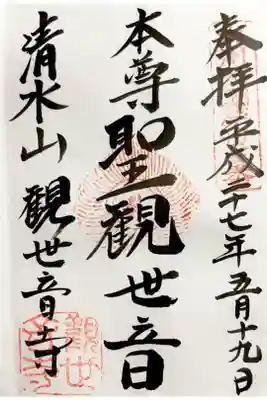 奉拝 平成二十七年五月十九日
本尊聖観世音
清水山 観世音寺